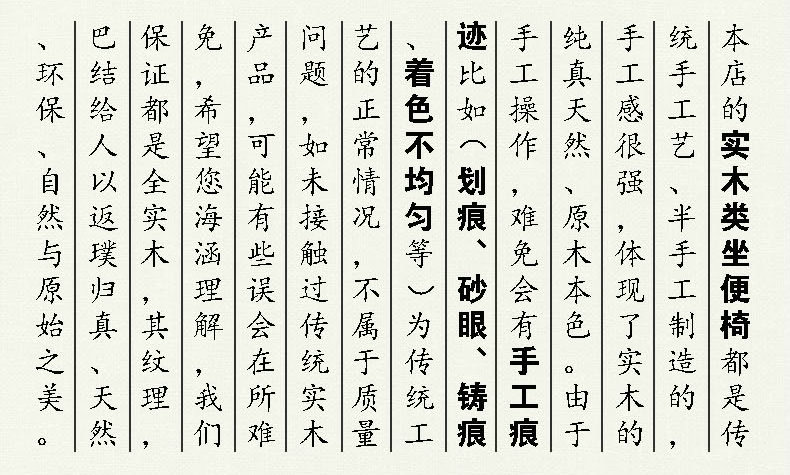 本店的实木类坐便椅都是传
统手工艺、半手工制造的，
手工感很强，体现了实木的
纯真天然、原木本色。由于
手工操作，难免会有手工痕
迹比如（划痕、砂眼、铸痕
、着色不均匀等）为传统工
艺的正常情况，不属于质量
问题，如未接触过传统实木
产品，可能有些误会在所难
免，希望您海涵理解，我们
保证都是全实木，其纹理，
巴结给人以返璞归真、天然
、环保、自然与原始之美。